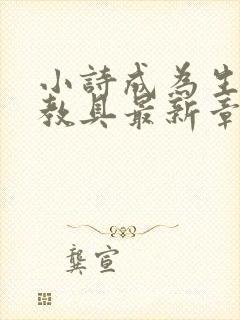 小詩成為生
教具最新章
龔宣